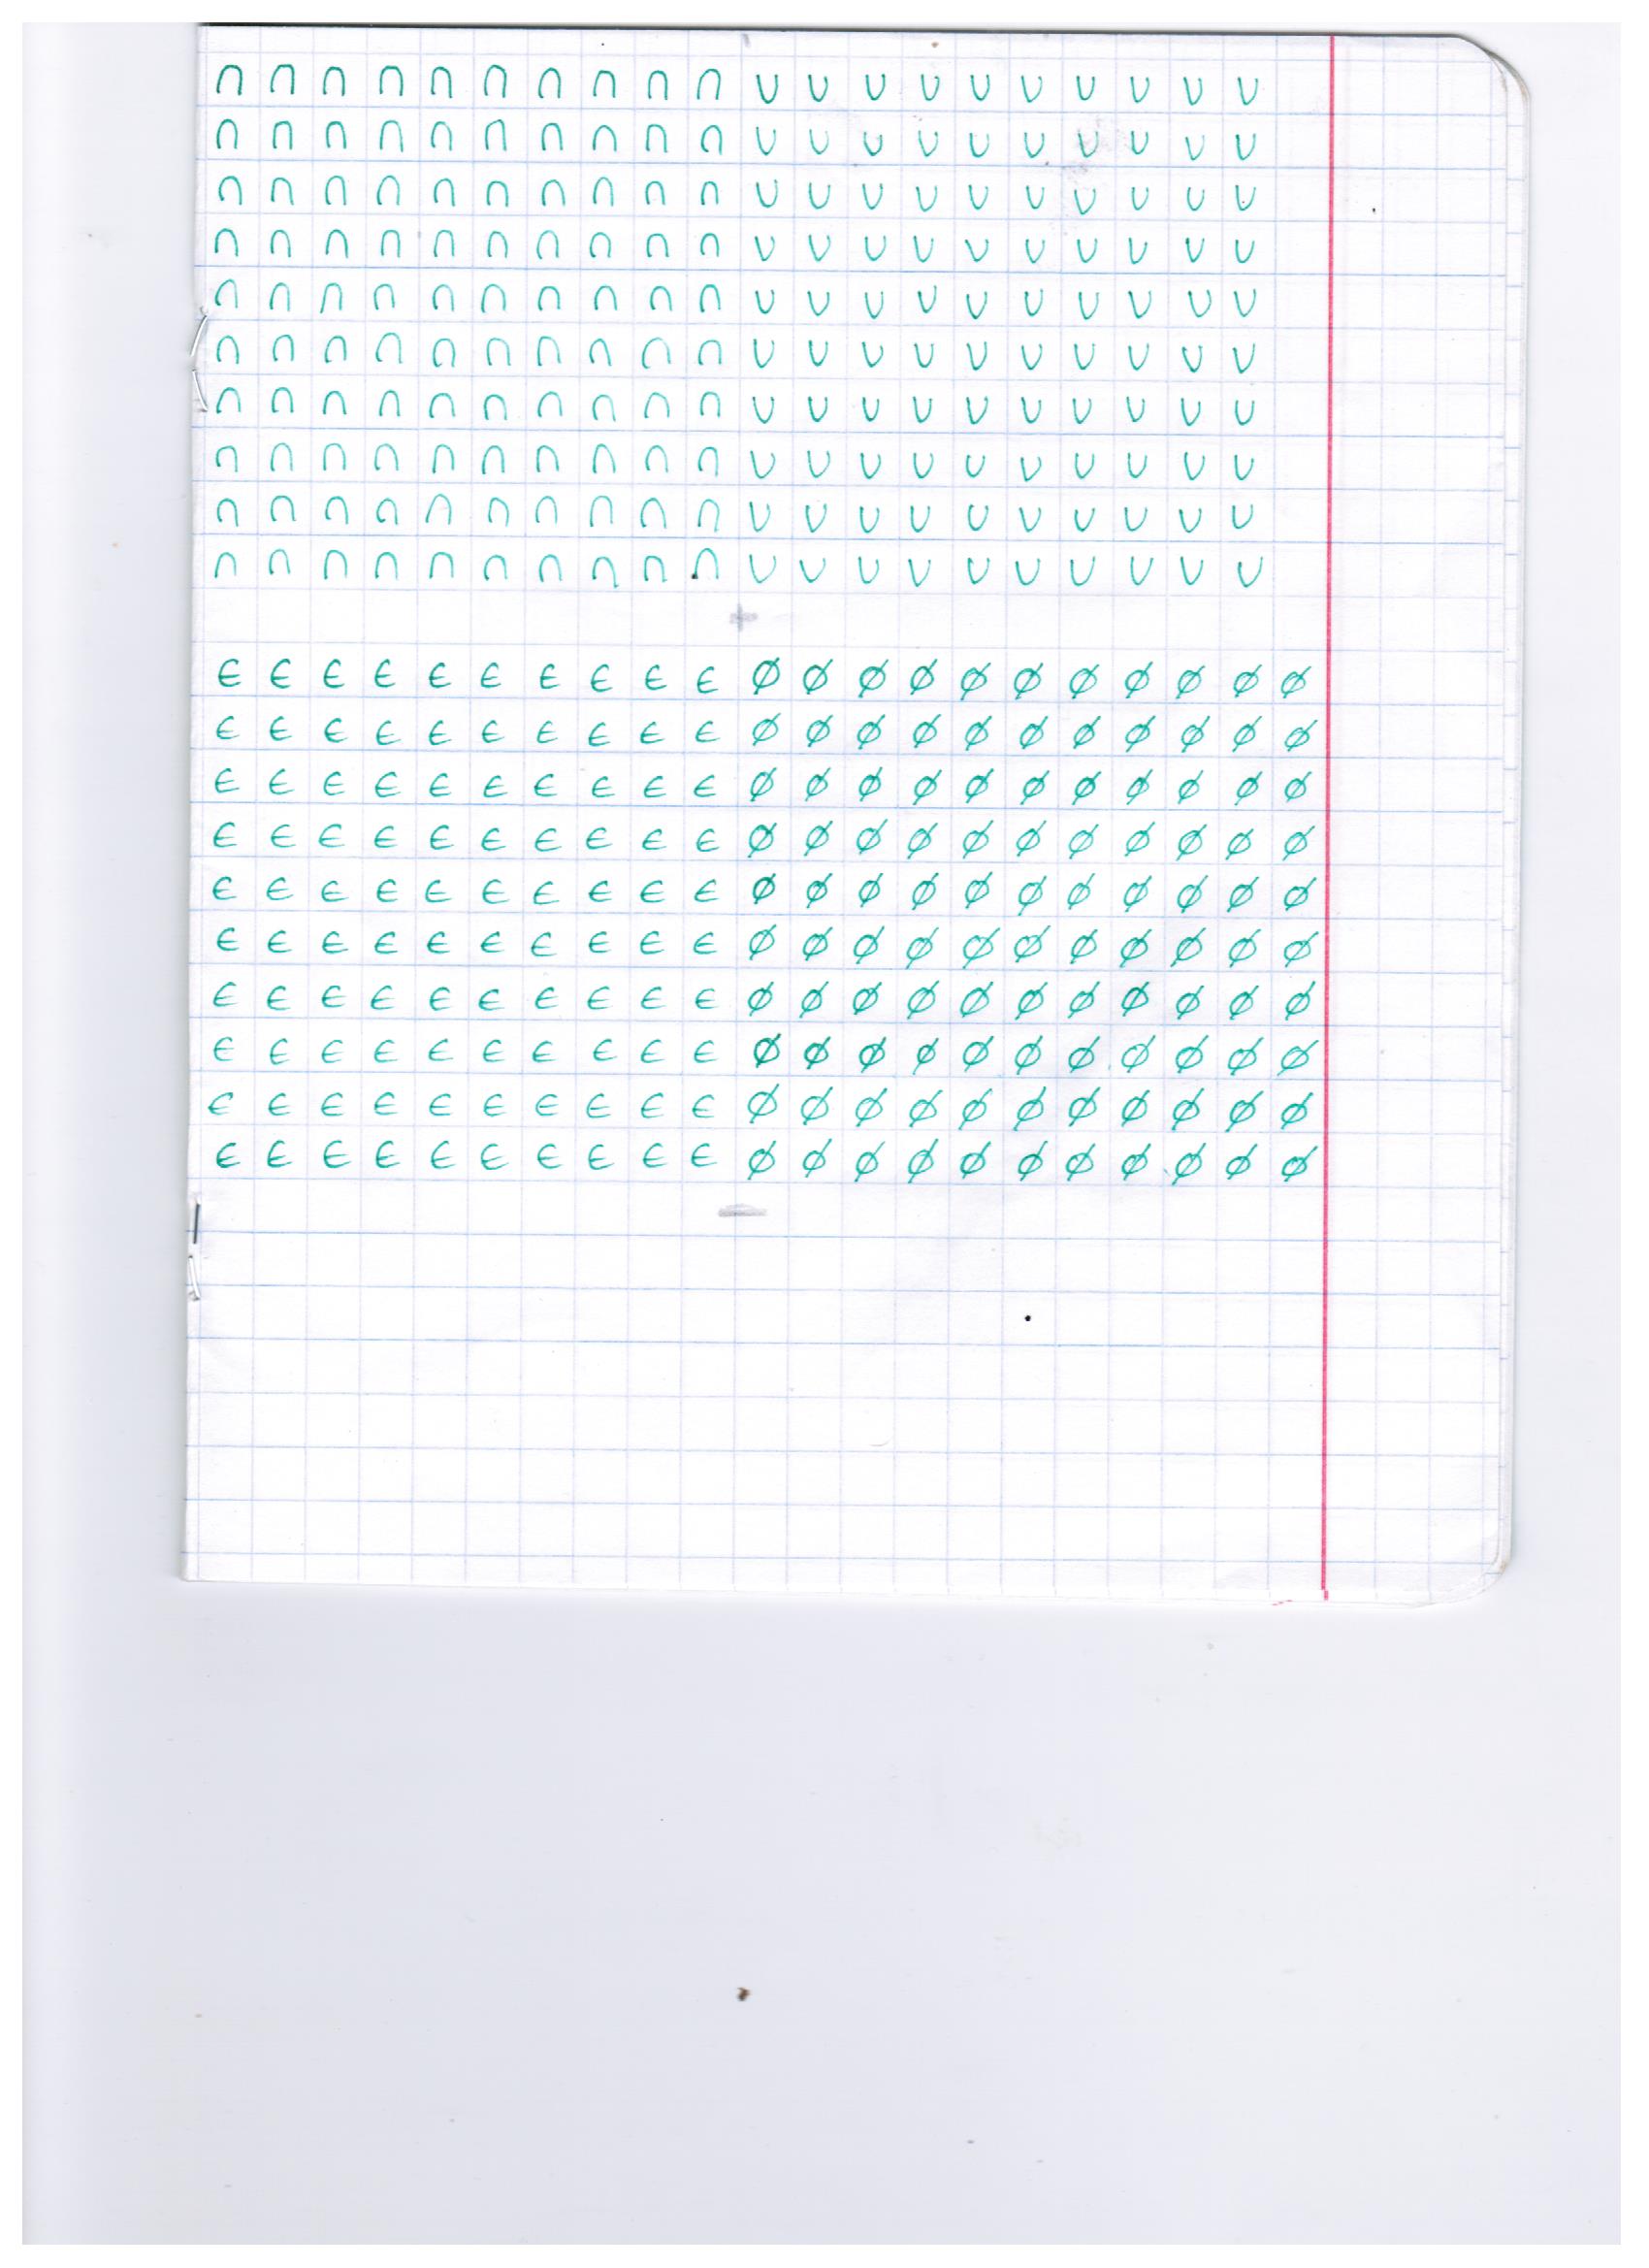 ∩ ∩ ∩ ∩ ∩ ∩ ∩ ∩ ∩ ∩ ∪ ∪ ∪ ∪ ∪ ∪ ∪ ∪ ∪ ∪
∩ ∩ ∩ ∩ ∩ ∩ ∩ ∩ ∩ ∩ ∪ ∪ ∪ ∪ ∪ ∪ ∪ ∪ ∪ ∪
∩ ∩ ∩ ∩ ∩ ∩ ∩ ∩ ∩ ∩ ∪ ∪ ∪ ∪ ∪ ∪ ∪ ∪ ∪ ∪
∩ ∩ ∩ ∩ ∩ ∩ ∩ ∩ ∩ ∩ ∪ ∪ ∪ ∪ ∪ ∪ ∪ ∪ ∪ ∪
∩ ∩ ∩ ∩ ∩ ∩ ∩ ∩ ∩ ∩ ∪ ∪ ∪ ∪ ∪ ∪ ∪ ∪ ∪ ∪
∩ ∩ ∩ ∩ ∩ ∩ ∩ ∩ ∩ ∩ ∪ ∪ ∪ ∪ ∪ ∪ ∪ ∪ ∪ ∪
∩ ∩ ∩ ∩ ∩ ∩ ∩ ∩ ∩ ∩ ∪ ∪ ∪ ∪ ∪ ∪ ∪ ∪ ∪ ∪
∩ ∩ ∩ ∩ ∩ ∩ ∩ ∩ ∩ ∩ ∪ ∪ ∪ ∪ ∪ ∪ ∪ ∪ ∪ ∪
∩ ∩ ∩ ∩ ∩ ∩ ∩ ∩ ∩ ∩ ∪ ∪ ∪ ∪ ∪ ∪ ∪ ∪ ∪ ∪
∩ ∩ ∩ ∩ ∩ ∩ ∩ ∩ ∩ ∩ ∪ ∪ ∪ ∪ ∪ ∪ ∪ ∪ ∪ ∪
+
∈ ∈ ∈ ∈ ∈ ∈ ∈ ∈ ∈ ∈ ∅ ∅ ∅ ∅ ∅ ∅ ∅ ∅ ∅ ∅ ∅
∈ ∈ ∈ ∈ ∈ ∈ ∈ ∈ ∈ ∈ ∅ ∅ ∅ ∅ ∅ ∅ ∅ ∅ ∅ ∅ ∅
∈ ∈ ∈ ∈ ∈ ∈ ∈ ∈ ∈ ∈ ∅ ∅ ∅ ∅ ∅ ∅ ∅ ∅ ∅ ∅ ∅
∈ ∈ ∈ ∈ ∈ ∈ ∈ ∈ ∈ ∈ ∅ ∅ ∅ ∅ ∅ ∅ ∅ ∅ ∅ ∅ ∅
∈ ∈ ∈ ∈ ∈ ∈ ∈ ∈ ∈ ∈ ∅ ∅ ∅ ∅ ∅ ∅ ∅ ∅ ∅ ∅ ∅
∈ ∈ ∈ ∈ ∈ ∈ ∈ ∈ ∈ ∈ ∅ ∅ ∅ ∅ ∅ ∅ ∅ ∅ ∅ ∅ ∅
∈ ∈ ∈ ∈ ∈ ∈ ∈ ∈ ∈ ∈ ∅ ∅ ∅ ∅ ∅ ∅ ∅ ∅ ∅ ∅ ∅
∈ ∈ ∈ ∈ ∈ ∈ ∈ ∈ ∈ ∈ ∅ ∅ ∅ ∅ ∅ ∅ ∅ ∅ ∅ ∅ ∅
∈ ∈ ∈ ∈ ∈ ∈ ∈ ∈ ∈ ∈ ∅ ∅ ∅ ∅ ∅ ∅ ∅ ∅ ∅ ∅ ∅
∈ ∈ ∈ ∈ ∈ ∈ ∈ ∈ ∈ ∈ ∅ ∅ ∅ ∅ ∅ ∅ ∅ ∅ ∅ ∅ ∅
−